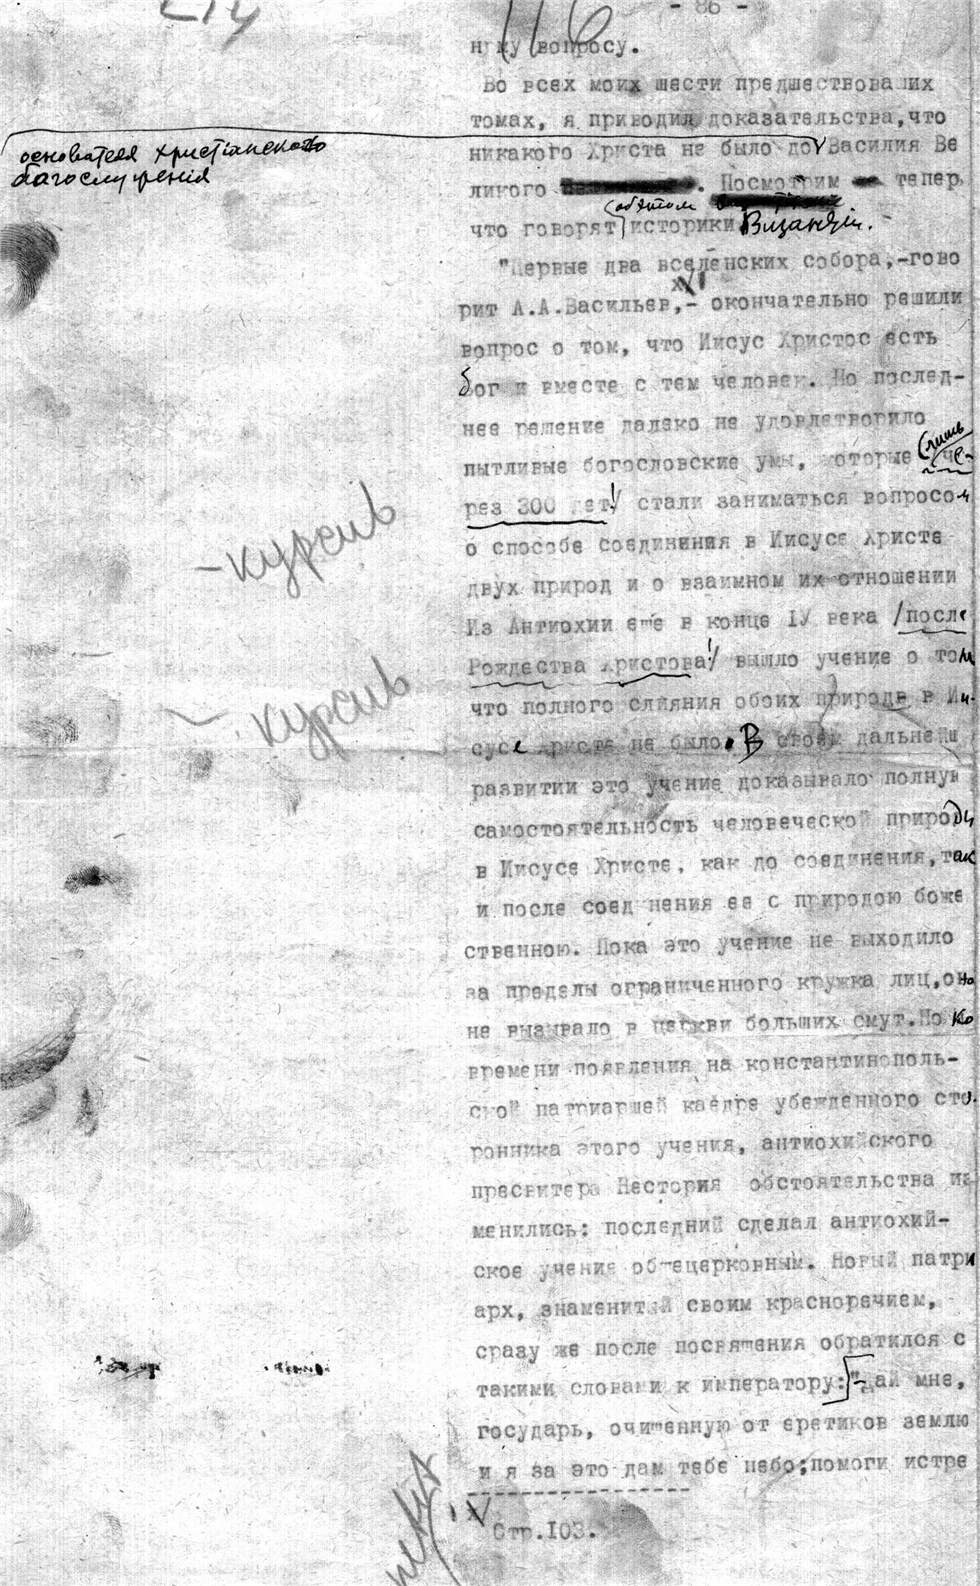 116
- 86 -
ному вопросу.
Во всех моих шести предшествовавших
томах, я приводил доказательства,что
никакого Христа не было до Василия Ве
основателя христианского
богослужения
ликого . Посмотрим тепер
об этом
что говорят историки Византии.
"Первые два вселенских собора,-гово
рит А.А.Васильев,- окончательно решили
вопрос о том, что Иисус Христос есть
бог и вместе с тем человек. Но послед-
нее решение далеко не удовлетворило
пытливые богословские умы, которые (лишь че-
рез 300 лет!/ стали заниматься вопросом
о способе соединения в Иисусе Христе
- курсив
двух природ и о взаимном их отношении
Из Антиохии еще в конце IУ века /после
Рождества Христова!/ вышло учение о том
что полного слияния обоих природ в Ии-
курсив
сусе Христе не было. В своем дальнейш
развитии это учение доказывало полную
самостоятельность человеческой природы
в Иисусе Христе, как до соединения,так
и после соединения ее с природою боже
ственною. Пока это учение не выходило
за пределы ограниченного кружка лиц,оно
не вызывало в церкви больших смут.Но ко
времени появления на константинополь-
ской патриаршей кафедре убежденного сто-
ронника этого учения, антиохийского
пресвитера Нестория обстоятельства из
менились: последний сделал антиохий-
ское учение общецерковным. Новый патри
арх, знаменитый своим красноречием,
сразу же после посвящения обратился с
такими словами к императору: "-Дай мне,
государь, очищенную от еретиков землю
и я за это дам тебе небо;помоги истре
Стр.103.